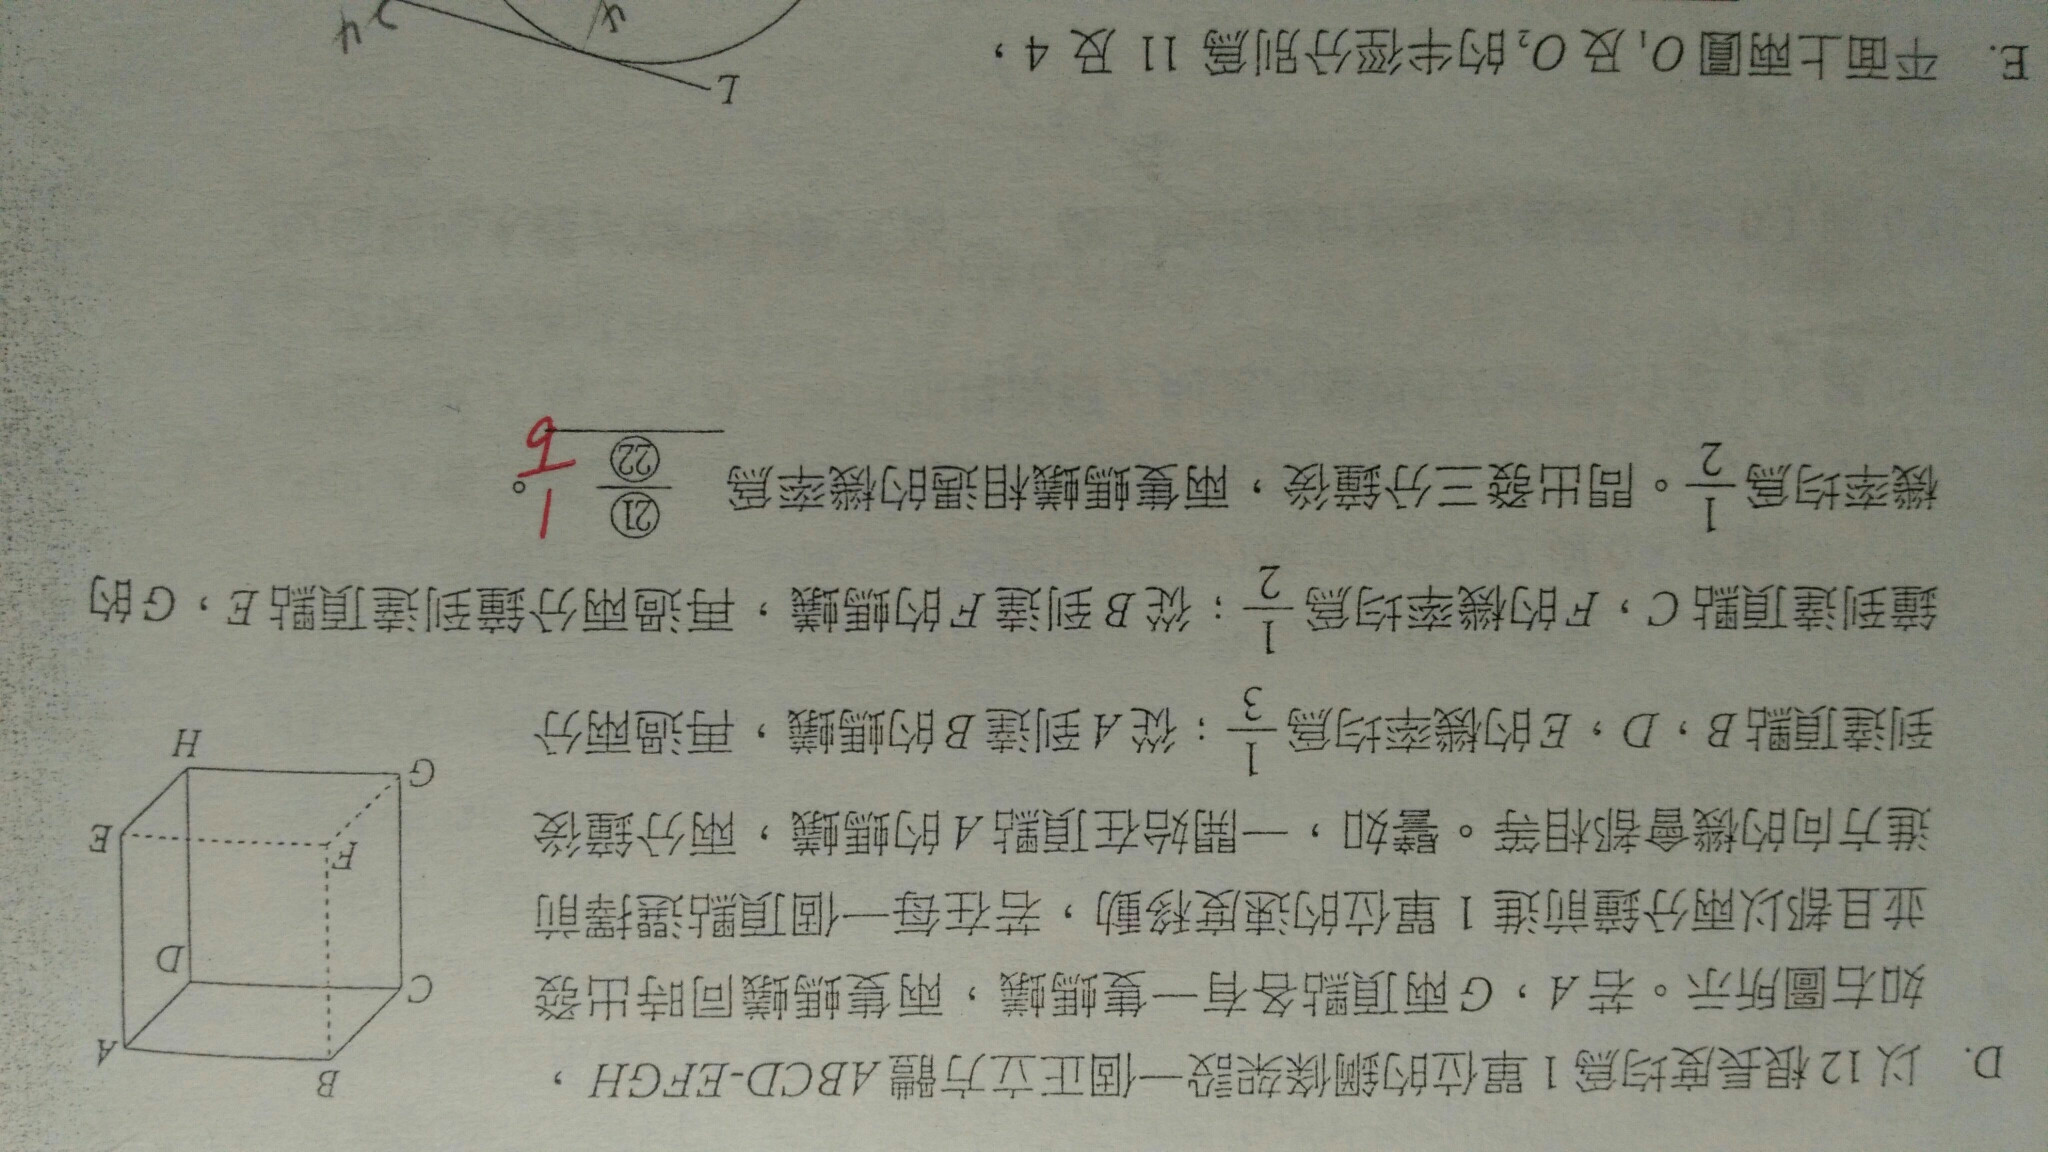 D. 以 12 根長度均為 1 單位的鋼條架設一個正立方體 ABCD-EFGH，
如右圖所示。若 A，G 兩頂點各有一隻螞蟻，兩隻螞蟻同時出發
並且都以兩分鐘前進 1 單位的速度移動，若在每一個頂點選擇前
進方向的機會都相等。譬如，一開始在頂點 A 的螞蟻，兩分鐘後
到達頂點 B，D，E 的機率均為 1/3；從 A 到達 B 的螞蟻，再過兩分
鐘到達頂點 C，F 的機率均為 1/2；從 B 到達 F 的螞蟻，再過兩分鐘到達頂點 E，G 的
機率均為 1/2。問出發三分鐘後，兩隻螞蟻相遇的機率為 ㉑/㉒。
B
A
C
D
F
E
G
H
E. 平面上兩圓 O₁ 及 O₂ 的半徑分別為 11 及 4，
L
24
4